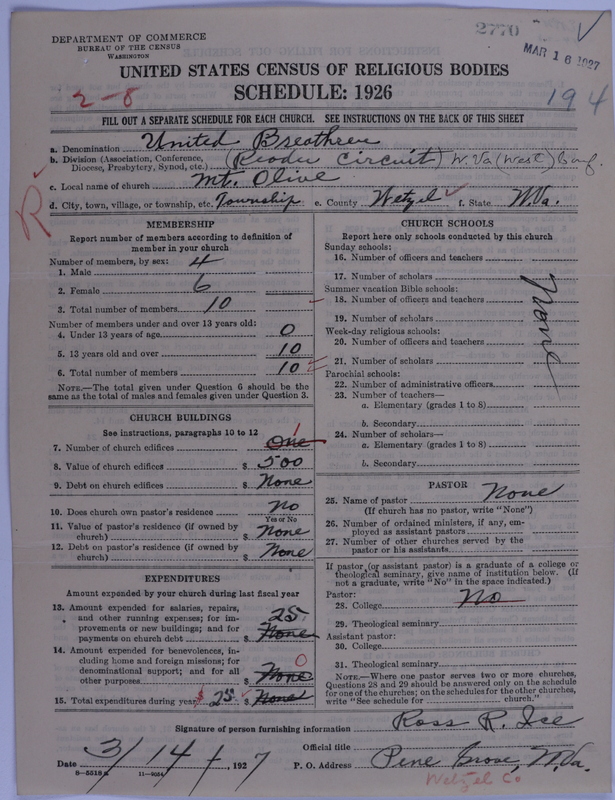 2770
MAR 16 1927
DEPARTMENT OF COMMERCE
BUREAU OF THE CENSUS
WASHINGTON
UNITED STATES CENSUS OF RELIGIOUS BODIES
SCHEDULE: 1926
2-8
194
FILL OUT A SEPARATE SCHEDULE FOR EACH CHURCH. SEE INSTRUCTIONS ON THE BACK OF THIS SHEET
a. Denomination United Breathren
b. Division (Association, Conference, Diocese, Presbytery, Synod, etc.) (Reader Circuit) W. Va (West) Conf.
c. Local name of church Mt. Olive
d. City, town, village, or township, etc. Township e. County Wetzel f. State W.Va.
R
MEMBERSHIP
Report number of members according to definition of
member in your church
Number of members, by sex:
1. Male 4
2. Female 6
3. Total number of members 10
Number of members under and over 13 years old:
4. Under 13 years of age 0
5. 13 years old and over 10
6. Total number of members 10
NOTE.—The total given under Question 6 should be the
same as the total of males and females given under Question 3.
CHURCH BUILDINGS
See instructions, paragraphs 10 to 12
7. Number of church edifices One 1
8. Value of church edifices $ 500
9. Debt on church edifices $ None
10. Does church own pastor's residence No
Yes or No
11. Value of pastor's residence (if owned by
church) $ None
12. Debt on pastor's residence (if owned by
church) $ None
EXPENDITURES
Amount expended by your church during last fiscal year
13. Amount expended for salaries, repairs,
and other running expenses; for im-
provements or new buildings; and for
payments on church debt $ None 25
14. Amount expended for benevolences, in-
cluding home and foreign missions; for
denominational support; and for all
other purposes $ None 0
15. Total expenditures during year $ 25 $ None
CHURCH SCHOOLS
Report here only schools conducted by this church
Sunday schools:
16. Number of officers and teachers
17. Number of scholars
Summer vacation Bible schools:
18. Number of officers and teachers
19. Number of scholars
Week-day religious schools:
20. Number of officers and teachers
21. Number of scholars
Parochial schools:
22. Number of administrative officers
23. Number of teachers—
a. Elementary (grades 1 to 8)
b. Secondary
24. Number of scholars—
a. Elementary (grades 1 to 8)
b. Secondary
None
PASTOR
25. Name of pastor None
(If church has no pastor, write "None")
26. Number of ordained ministers, if any, em-
ployed as assistant pastors
27. Number of other churches served by the
pastor or his assistants
If pastor (or assistant pastor) is a graduate of a college or
theological seminary, give name of institution below. (If
not a graduate, write "No" in the space indicated.)
Pastor:
28. College No
29. Theological seminary
Assistant pastor:
30. College
31. Theological seminary
NOTE.—Where one pastor serves two or more churches,
Questions 28 and 29 should be answered only on the schedule
for one of the churches; on the schedules for the other churches,
write "See schedule for church."
Signature of person furnishing information Ross R. Ice
Official title
Date 3/14th, 1927 P. O. Address Pine Grove, W.Va.
8-5518a 11-9054
Wetzel Co